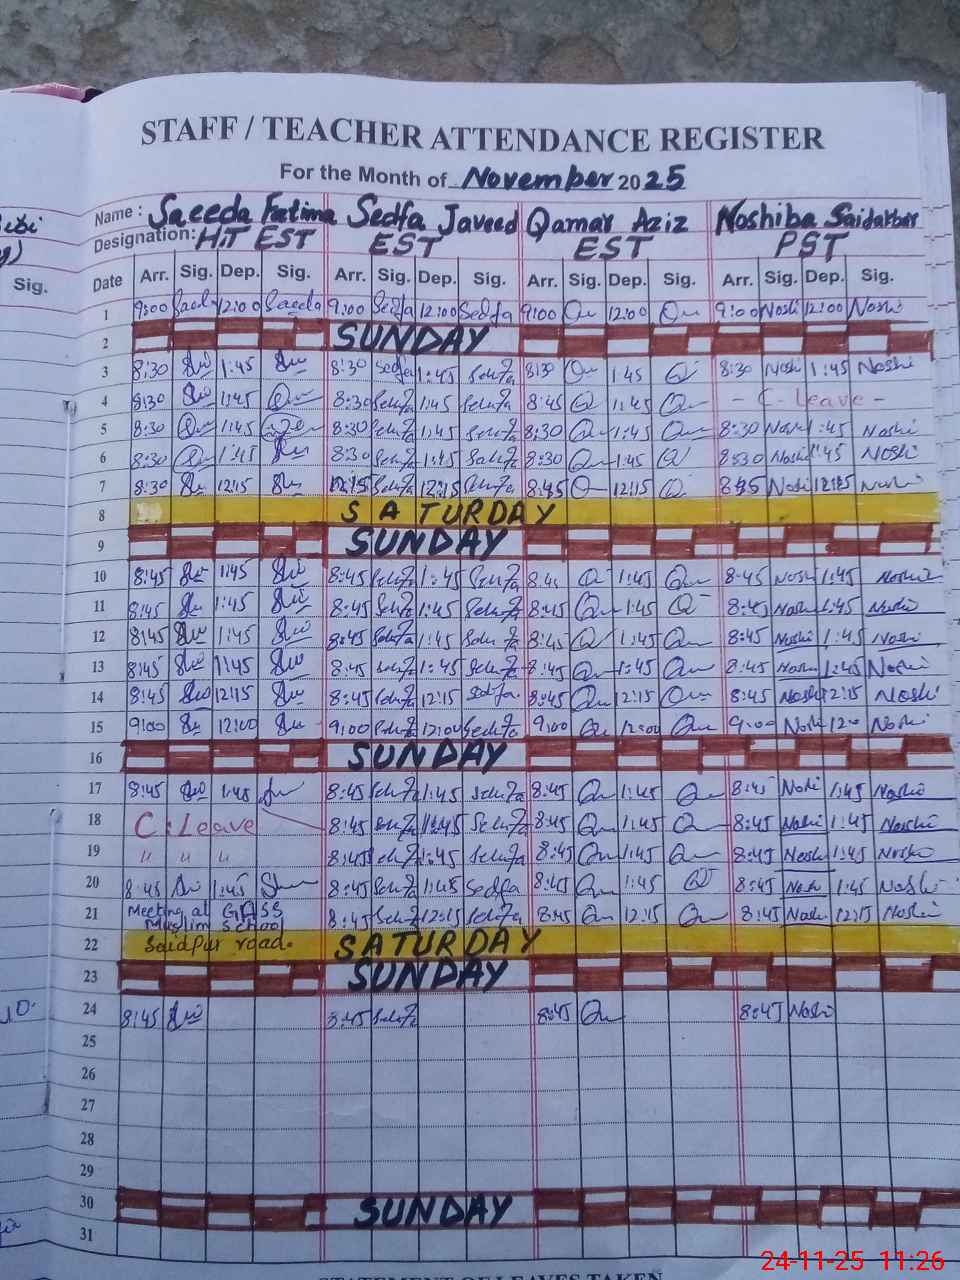 STAFF / TEACHER ATTENDANCE REGISTER
For the Month of November 2025
Name : Saeeda Fatima Sedfa Javeed Qamar Aziz Noshiba Saidakbar
Designation: H.T EST EST EST PST
Sig. Date Arr. Sig. Dep. Sig. Arr. Sig. Dep. Sig. Arr. Sig. Dep. Sig. Arr. Sig. Dep. Sig.
1 9:00 Saeda 12:00 Saeeda 9:00 Sedfa 12:00 Sedfa 9:00 12:00 9:00 Noshi 12:00 Noshi
2 SUNDAY
3 8:30 1:45 8:30 Sedfa 1:45 Sedfa 8:30 1:45 8:30 Noshi 1:45 Noshi
4 8:30 1:45 8:30 Sedfa 1:45 Sedfa 8:45 1:45 - C - Leave -
5 8:30 1:45 8:30 Sedfa 1:45 Sedfa 8:30 1:45 8:30 Noshi 1:45 Noshi
6 8:30 1:45 8:30 Sedfa 1:45 Sedfa 8:30 1:45 8:30 Noshi 1:45 Noshi
7 8:30 12:15 Sedfa 12:15 Sedfa 8:45 12:15 Noshi 12:15 Noshi
8 SATURDAY
9 SUNDAY
10 8:45 1:45 8:45 Sedfa 1:45 Sedfa 8:45 1:45 8:45 Noshi 1:45 Noshi
11 8:45 1:45 8:45 Sedfa 1:45 Sedfa 8:45 1:45 8:45 Noshi 1:45 Noshi
12 8:45 1:45 8:45 Sedfa 1:45 Sedfa 8:45 1:45 8:45 Noshi 1:45 Noshi
13 8:45 1:45 8:45 Sedfa 1:45 Sedfa 8:45 1:45 8:45 Noshi 1:45 Noshi
14 8:45 12:15 8:45 Sedfa 12:15 Sedfa 8:45 12:15 8:45 Noshi 12:15 Noshi
15 9:00 12:00 9:00 Sedfa 12:00 Sedfa 9:00 12:00 9:00 Noshi 12:00 Noshi
16 SUNDAY
17 8:45 1:45 8:45 Sedfa 1:45 Sedfa 8:45 1:45 8:45 Noshi 1:45 Noshi
18 C. Leave 8:45 Sedfa 1:45 Sedfa 8:45 1:45 8:45 Noshi 1:45 Noshi
19 " " " 8:45 Sedfa 1:45 Sedfa 8:45 1:45 8:45 Noshi 1:45 Noshi
20 8:45 1:45 8:45 Sedfa 1:45 Sedfa 8:45 1:45 8:45 Noshi 1:45 Noshi
21 Meeting at GASS Muslim School 8:45 Sedfa 12:15 Sedfa 8:45 12:15 8:45 Noshi 12:15 Noshi
22 Saidpur road. SATURDAY
23 SUNDAY
24 8:45 8:45 Sedfa 8:45 8:45 Noshi
25
26
27
28
29
30 SUNDAY
31
STATEMENT OF LEAVES TAKEN
24-11-25 11:26